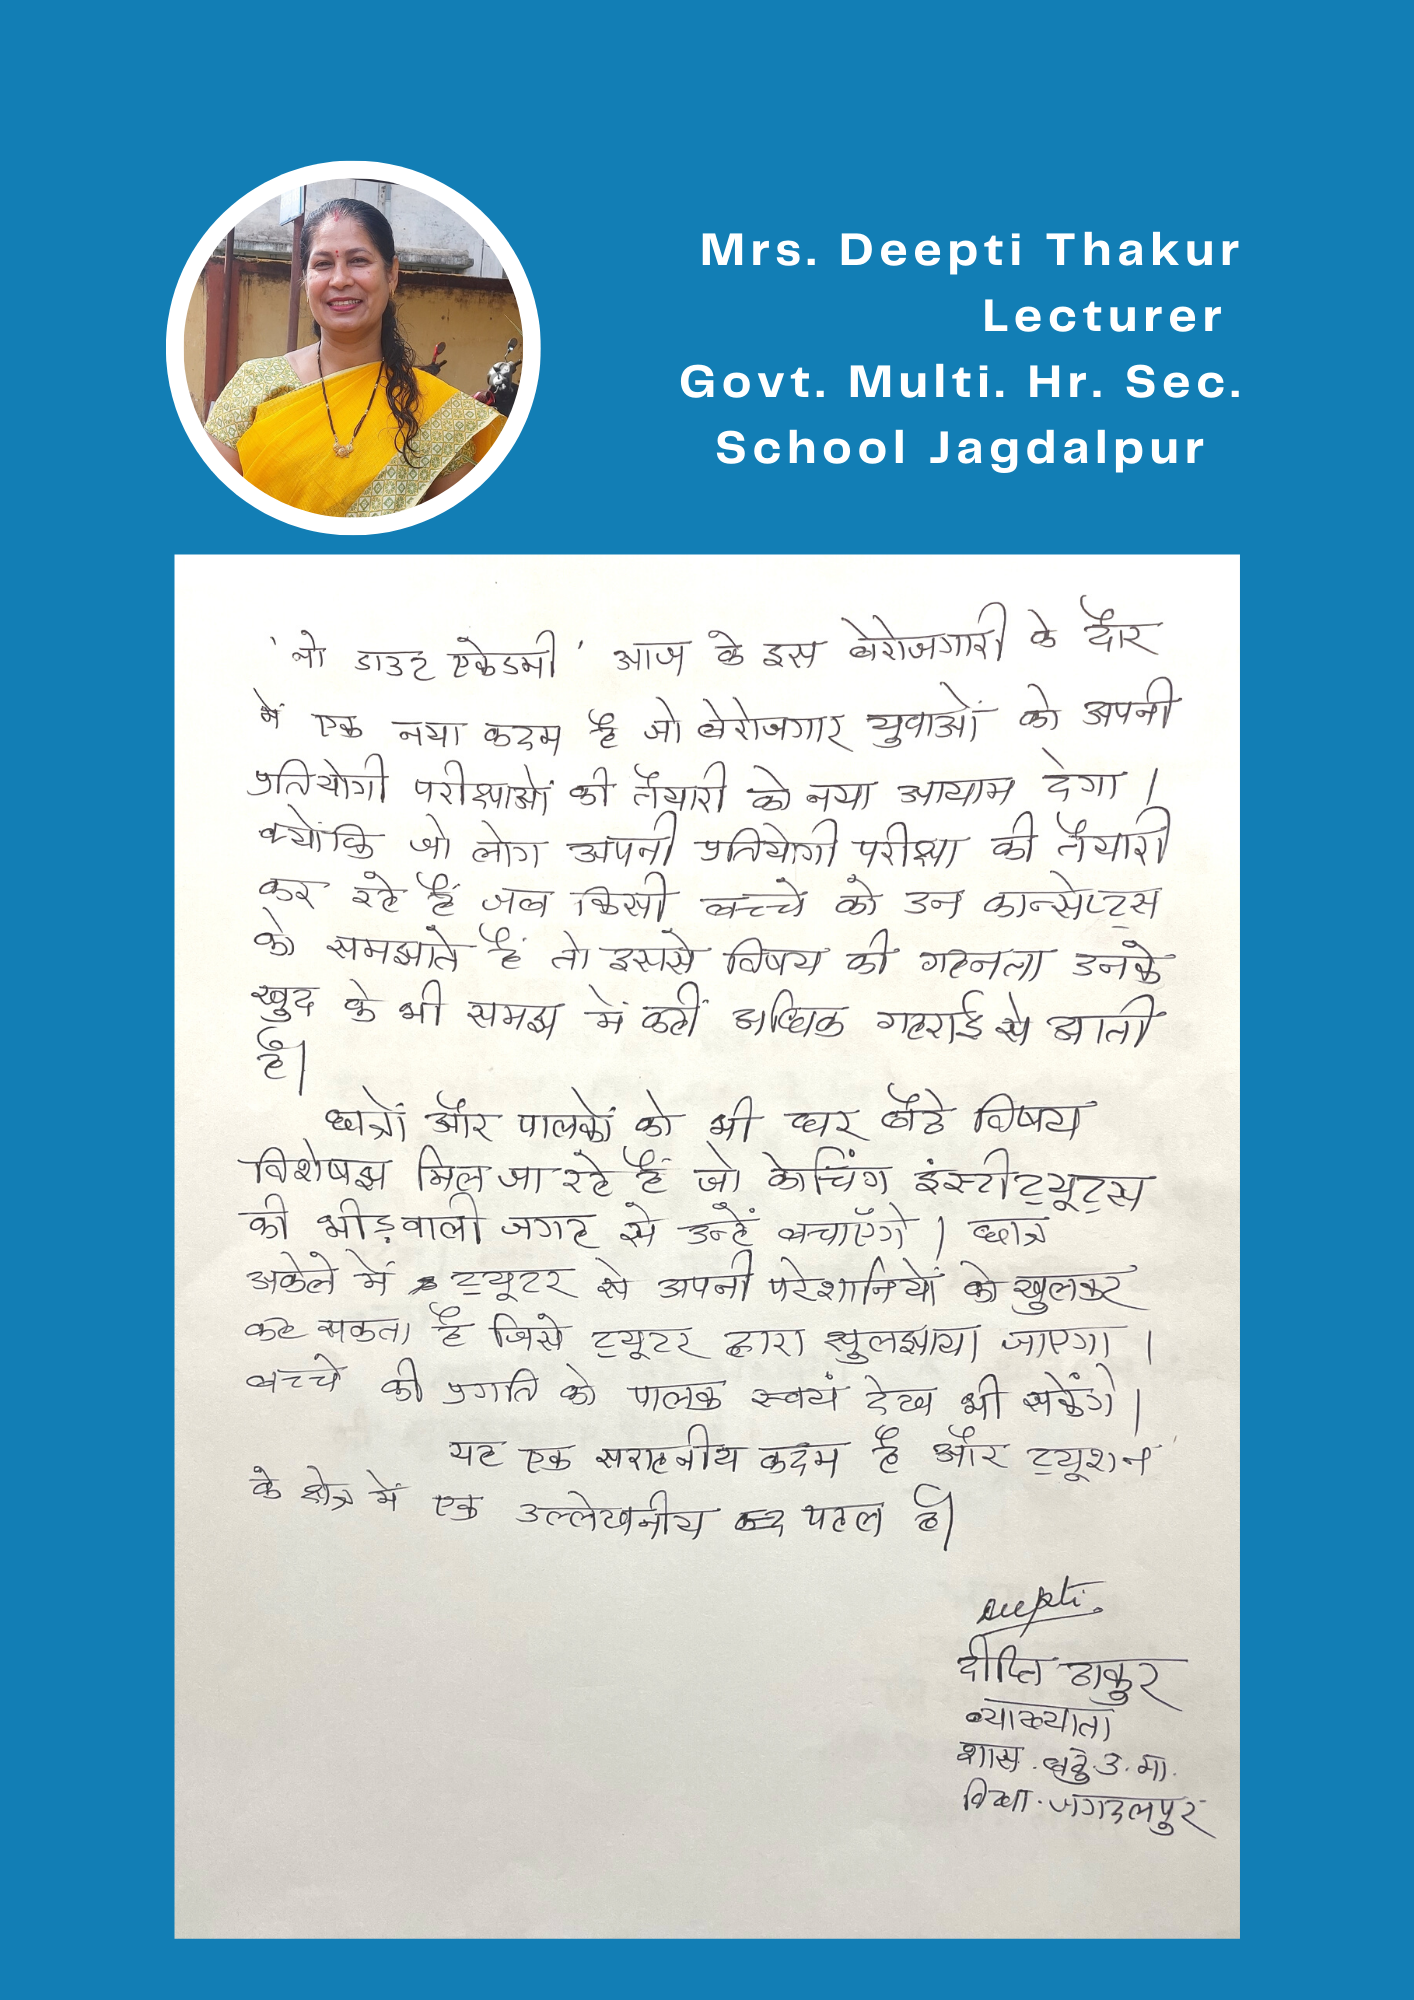 Mrs. Deepti Thakur
Lecturer
Govt. Multi. Hr. Sec.
School Jagdalpur
'नो डाउट एकेडमी' आज के इस बेरोजगारी के दौर
में एक नया कदम है जो बेरोजगार युवाओं को अपनी
प्रतियोगी परीक्षाओं की तैयारी को नया आयाम देगा।
क्योंकि जो लोग अपनी प्रतियोगी परीक्षा की तैयारी
कर रहे हैं जब किसी बच्चे को उन कान्सेप्ट्स
को समझाते हैं तो इससे विषय की गहनता उनके
खुद के भी समझ में कहीं अधिक गहराई से आती
है।
छात्रों और पालकों को भी घर बैठे विषय
विशेषज्ञ मिल जा रहे हैं जो कोचिंग इंस्टीट्यूट्स
की भीड़वाली जगह से उन्हें बचाएँगे। छात्र
अकेले में ट्यूटर से अपनी परेशानियों को खुलकर
कह सकता है जिसे ट्यूटर द्वारा सुलझाया जाएगा।
बच्चे की प्रगति को पालक स्वयं देख भी सकेंगे।
यह एक सराहनीय कदम है और ट्यूशन
के क्षेत्र में एक उल्लेखनीय पहल है।
Deepti
दीप्ति ठाकुर
व्याख्याता
शास. बहु.उ.मा.
विद्या. जगदलपुर